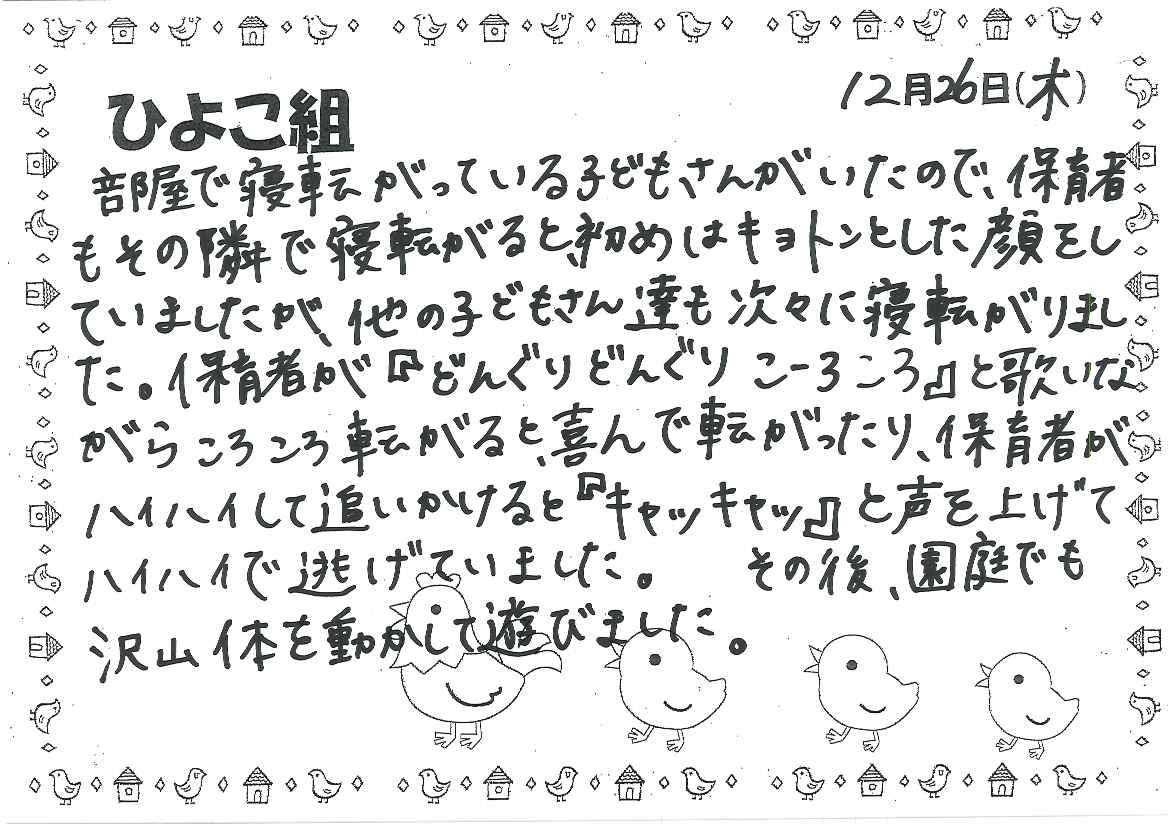 12月26日(木)
ひよこ組
部屋で寝転がっている子どもさんがいたので、保育者
もその隣で寝転がると、初めはキョトンとした顔をし
ていましたが、他の子どもさん達も次々に寝転がりまし
た。保育者が『どんぐりどんぐり こーろころ』と歌いな
がらころころ転がると、喜んで転がったり、保育者が
ハイハイして追いかけると『キャッキャッ』と声を上げて
ハイハイで逃げていました。 その後、園庭でも
沢山体を動かして遊びました。